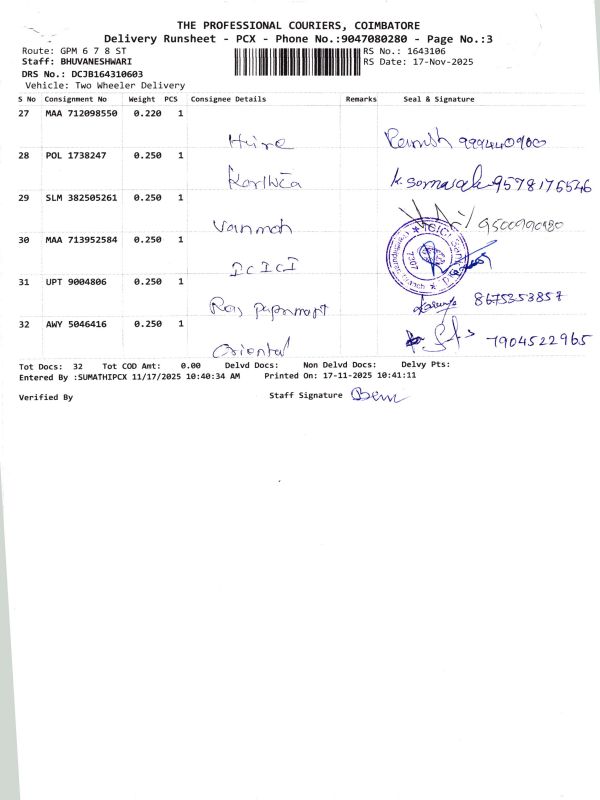 THE PROFESSIONAL COURIERS, COIMBATORE
Delivery Runsheet - PCX - Phone No.:9047080280 - Page No.:3
Route: GPM 6 7 8 ST RS No.: 1643106
Staff: BHUVANESHWARI RS Date: 17-Nov-2025
DRS No.: DCJB164310603
Vehicle: Two Wheeler Delivery
S No Consignment No Weight PCS Consignee Details Remarks Seal & Signature
27 MAA 712098550 0.220 1
Hire
28 POL 1738247 0.250 1
9578175546
29 SLM 382505261 0.250 1
30 MAA 713952584 0.250 1
ICICI
31 UPT 9004806 0.250 1
8675353857
32 AWY 5046416 0.250 1
Oriental 7904522965
Tot Docs: 32 Tot COD Amt: 0.00 Delvd Docs: Non Delvd Docs: Delvy Pts:
Entered By :SUMATHIPCX 11/17/2025 10:40:34 AM Printed On: 17-11-2025 10:41:11
Verified By Staff Signature